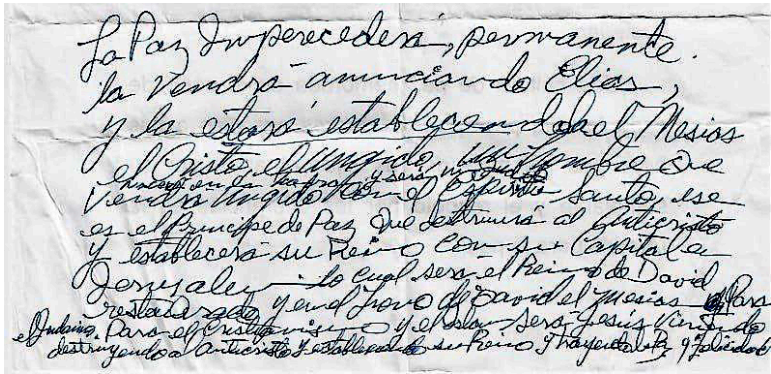 La Paz Imperecedera, permanente.
la vendrá anunciando Elias,
y la estará estableciendola el Mesias
el Cristo, el ungido, un hombre que
nacerá en la tierra y será ungido
Vendrá Ungido con el Espíritu Santo, ese
es el Príncipe de Paz que destruirá al anticristo
y establecerá su Reino con su Capital en
Jerusalen lo cual será el Reino de David
restaurado y en el Trono de David el Mesias Para
el Judaismo. Para el Cristianismo y el Islam será Jesús Viniendo
destruyendo al anticristo y estableciendo su Reino y trayendo la Paz y felicidad